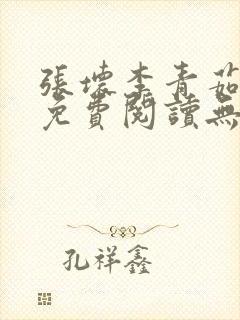 張壞李青茹
免費閱讀無
孔祥鑫